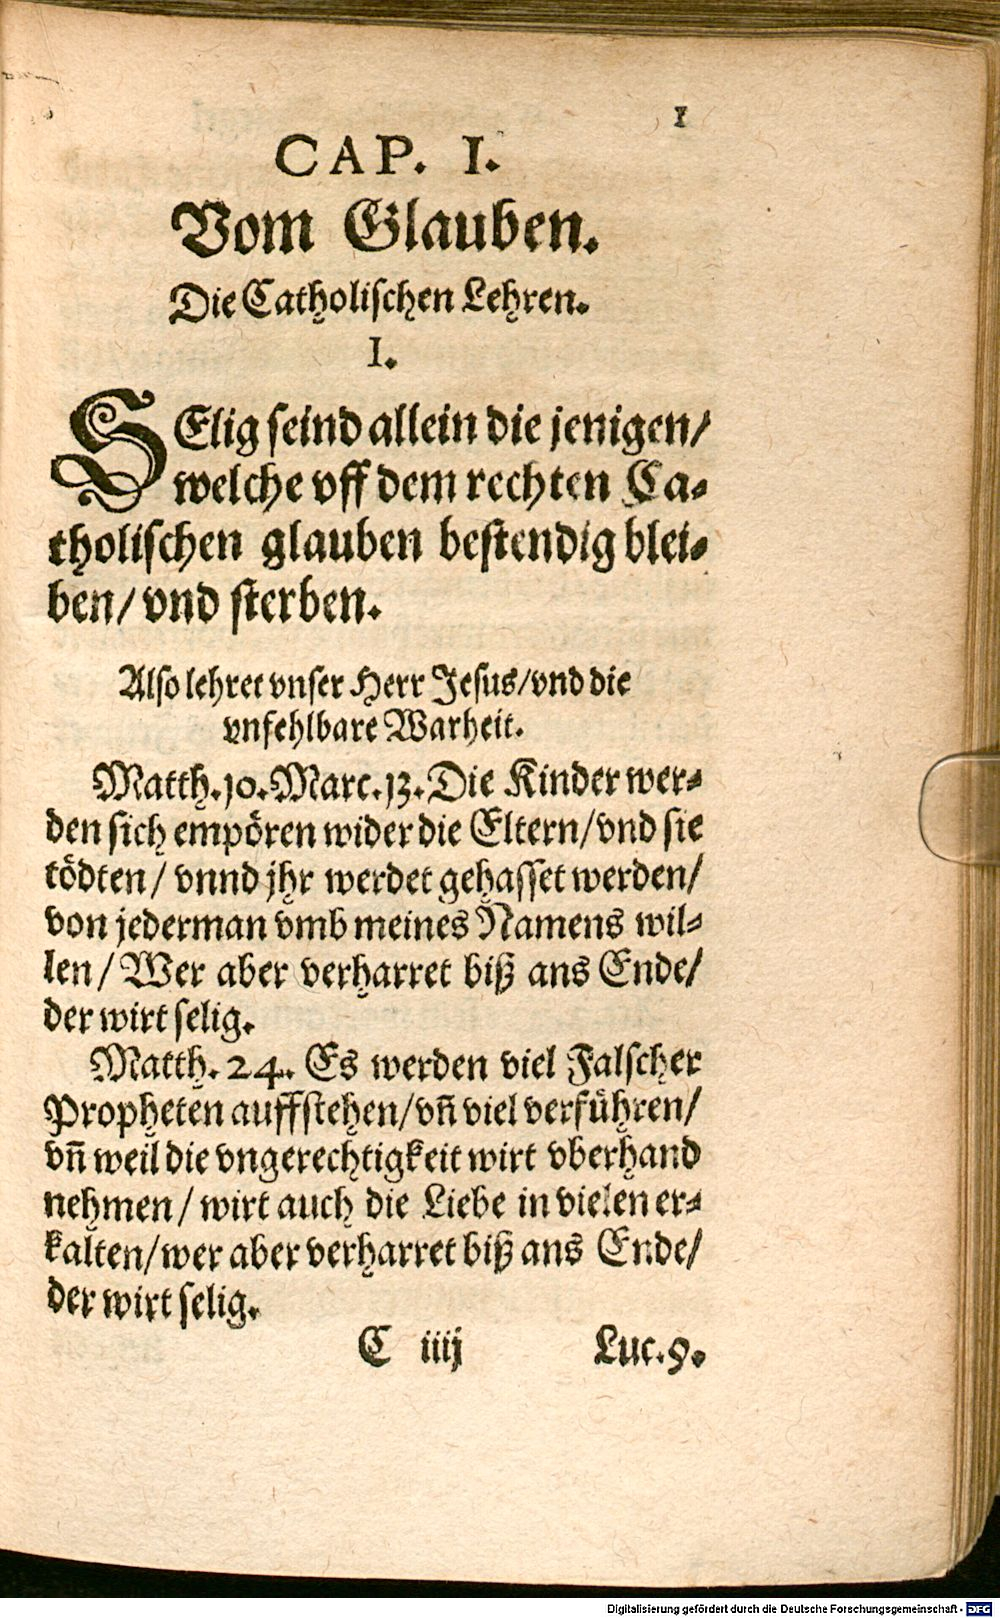 1
CAP. I.
Vom Glauben.
Die Catholischen Lehren.
I.
SElig seind allein die jenigen/
welche vff dem rechten Ca-
tholischen glauben bestendig blei-
ben/ vnd sterben.
Also lehret vnser Herr Jesus/ vnd die
vnfehlbare Warheit.
Matth. 10. Marc. 13. Die Kinder wer-
den sich empören wider die Eltern/ vnd sie
tödten/ vnnd jhr werdet gehasset werden/
von jederman vmb meines Namens wil-
len/ Wer aber verharret biß ans Ende/
der wirt selig.
Matth. 24. Es werden viel Falscher
Propheten auffstehen/ vn̄ viel verführen/
vn̄ weil die vngerechtigkeit wirt vberhand
nehmen/ wirt auch die Liebe in vielen er-
kalten/ wer aber verharret biß ans Ende/
der wirt selig.
C iiij Luc. 9.
Digitalisierung gefördert durch die Deutsche Forschungsgemeinschaft - DFG